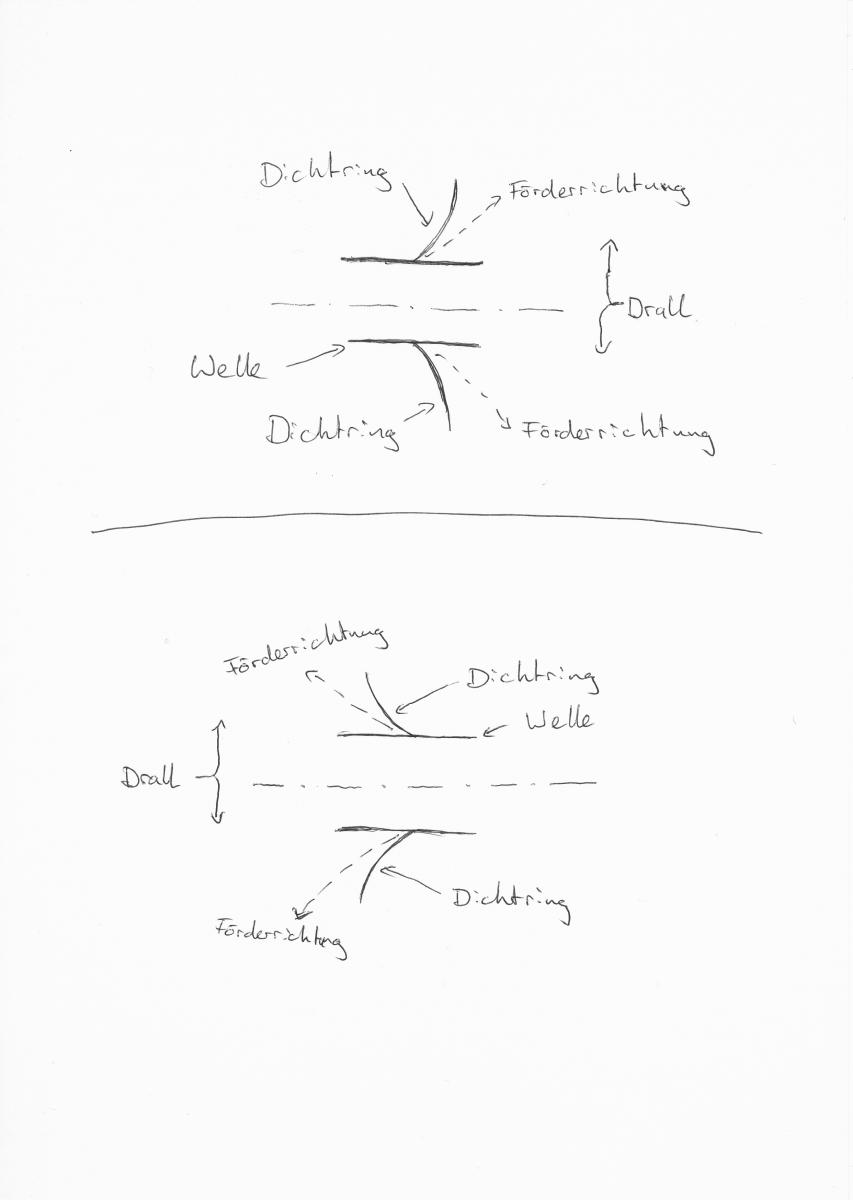 Dichtring
Förderrichtung
Drall
Welle
Dichtring
Förderrichtung
Förderrichtung
Dichtring
Welle
Drall
Dichtring
Förderrichtung